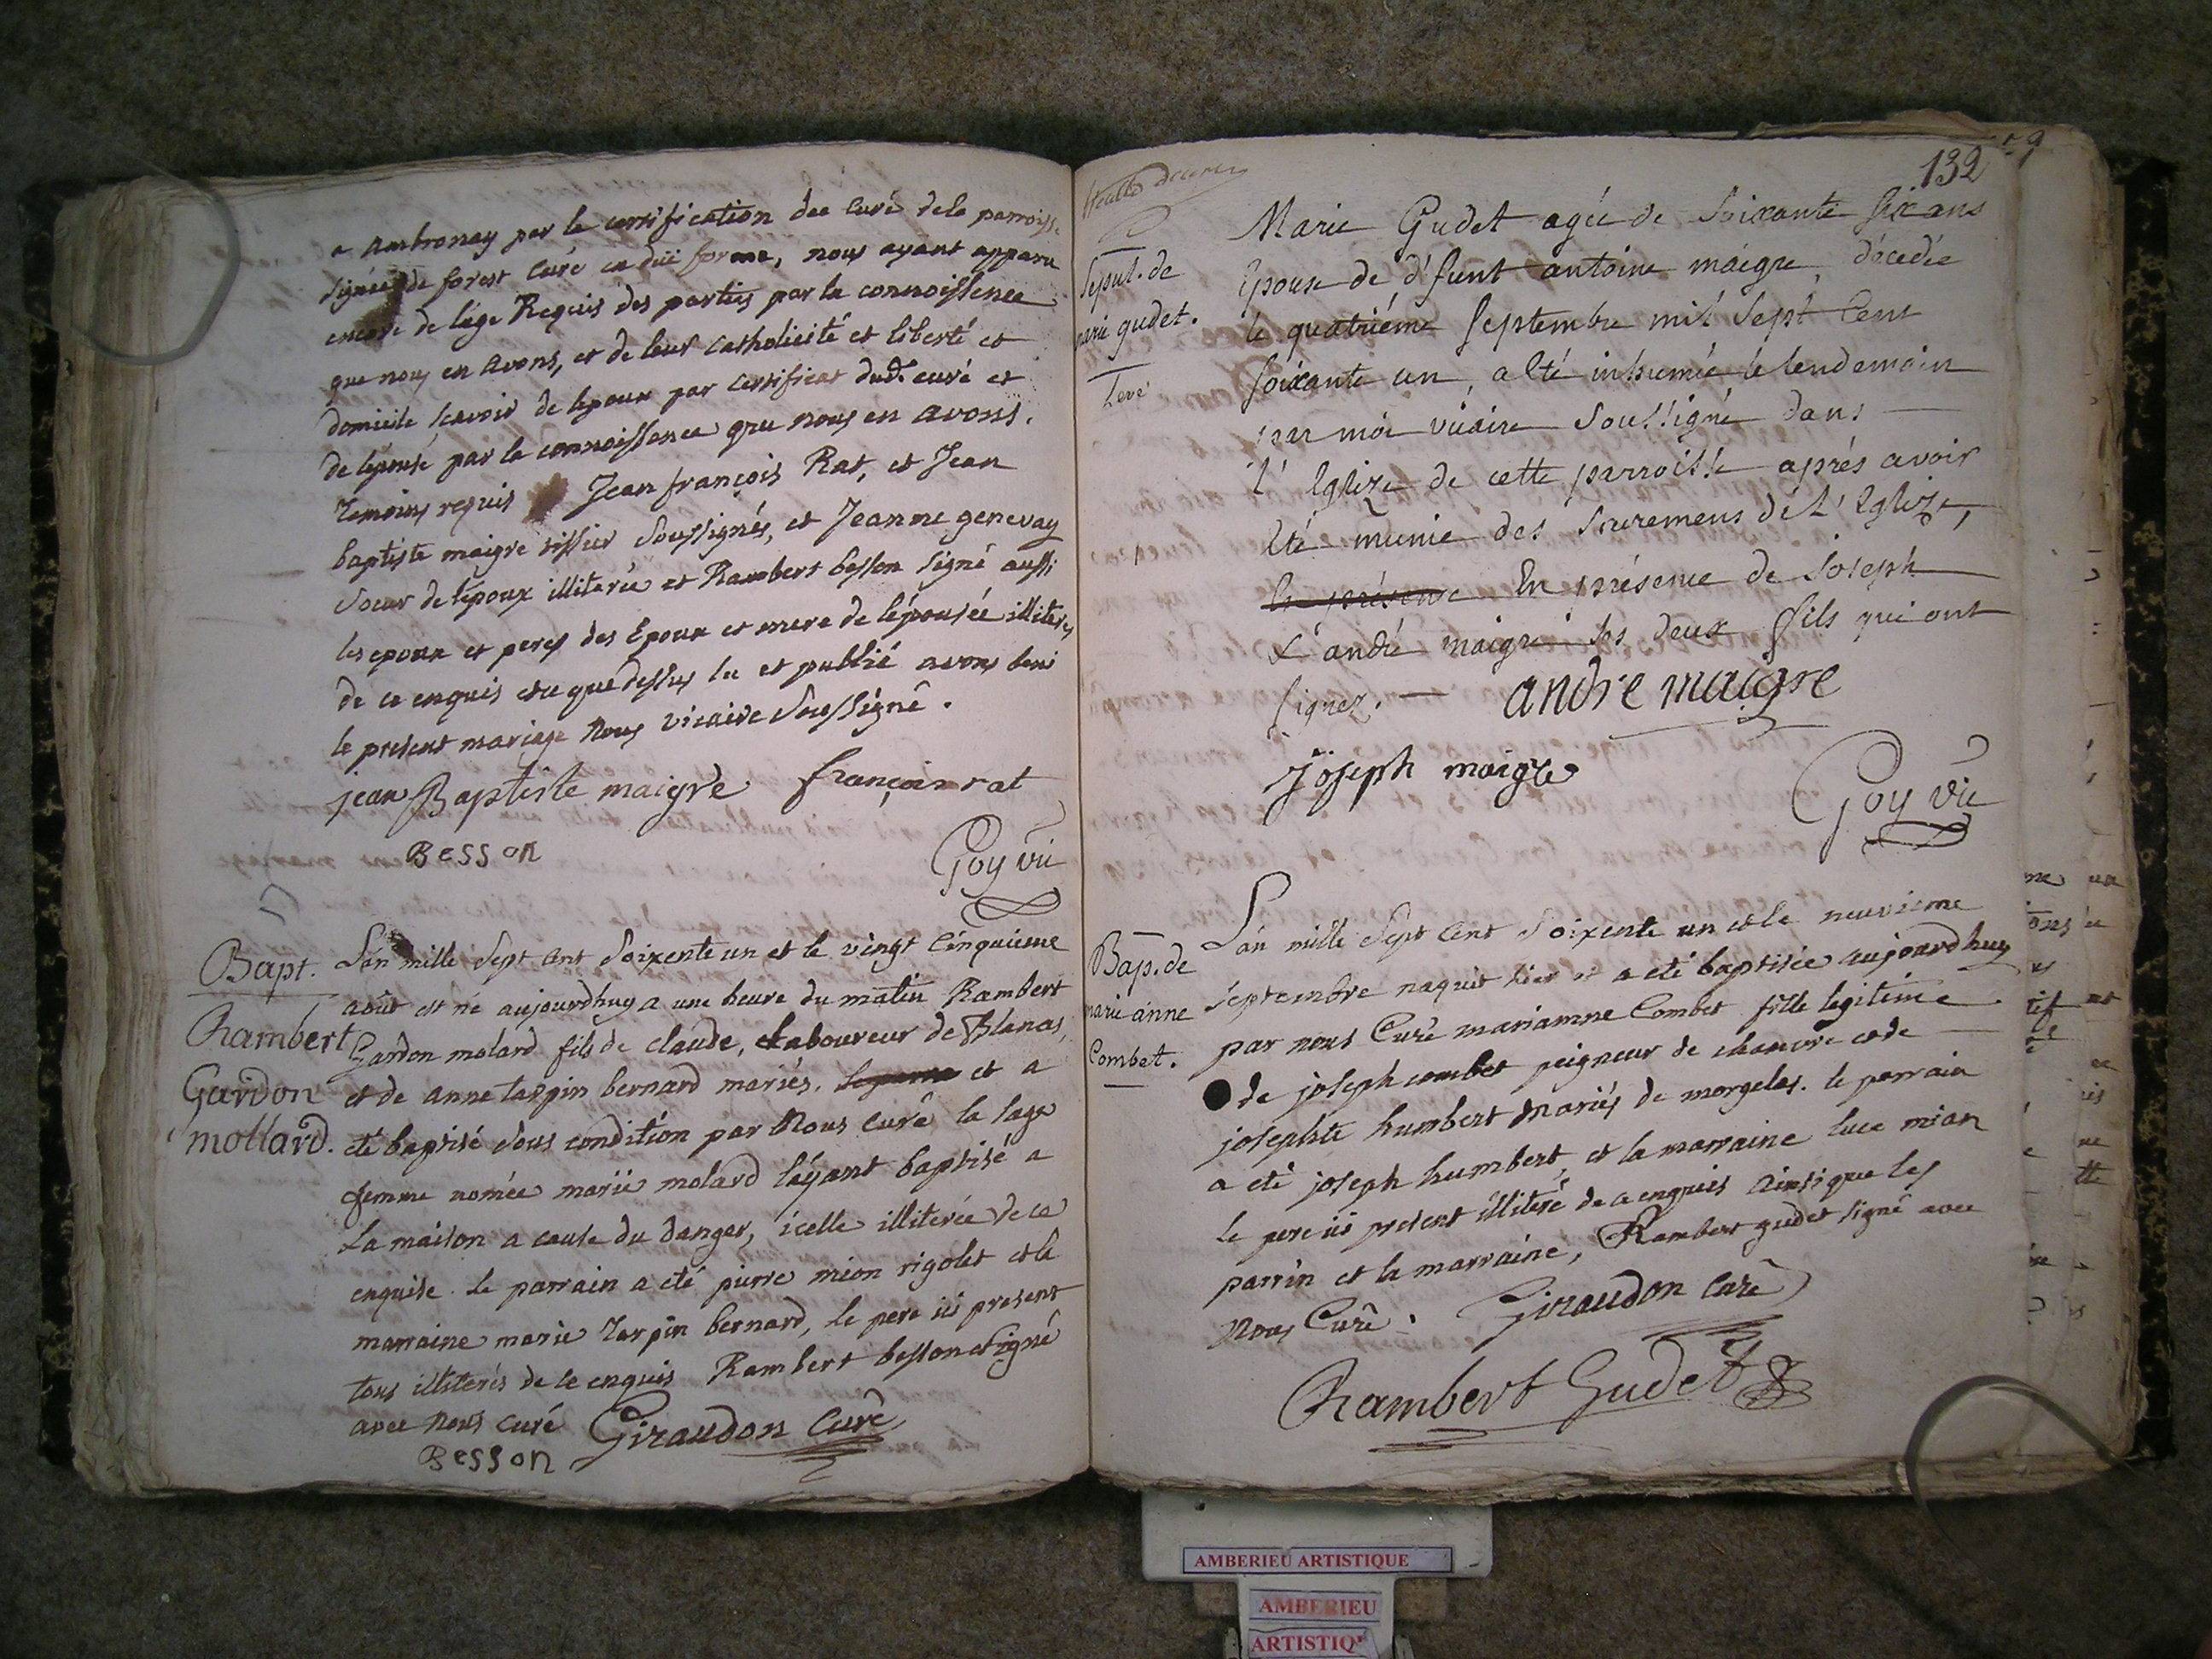 a Ambronay par la certification des Curé de la parroisse
signée de forest Curé en düe forme, nous ayant apparu
encore de l'age Requis des parties par la connoissence
que nous en avons, et de leur catholicité et liberté et
domicile scavoir de lepoux par certificat dud.t curé et
de lepouse par la connoissence que nous en avons.
Temoins requis Jean françois Rat, et Jean
baptiste maigre tissier Soussignés, et Jeanne genevay
Soeur de lépoux illiterée et Rambert besson signé aussi
les epoux et peres des Epoux et mere de lépousée illiterés
de ce enquis et ce que dessus lu et publié avons beni
le present mariage Nous vicaire Soussigné.
jean Baptiste maigre françois rat
Besson
Goy vic
Bapt.
Rambert
Gardon
mollard.
L'an mille Sept cent Soixente un et le vingt cinquieme
août est né aujourdhuy a une heure du matin Rambert
Gardon molard fils de claude, laboureur de Blanas,
et de anne tarpin bernard mariés. et a
eté baptisé Sous condition par Nous Curé la sage
femme nomée marie molard l'ayant baptisé a
La maison a cause du danger, icelle illiterée de ce
enquise. Le parrain a eté pierre mion rigolet et la
marraine marie Tarpin bernard, le pere ici present
tous illiterés de ce enquis Rambert besson et signé
avec Nous curé Giraudon Curé
Besson
132
Sepul. de
marie gudet.
Levé
Marie Gudet agée de Soixante Six ans
Epouse de défunt antoine maigre, décedée
le quatriéme Septembre mil Sept Cent
Soixante un, a été inhumée le lendemain
par moi vicaire Soussigné dans
l'Eglize de cette parroisse aprés avoir
été munie des Sacremens de L'Eglize,
En présence En présence de Joseph
& andré maigre ses deux fils qui ont
Signez. andre maigre
joseph maigre
Goy vic
Bap. de
marie anne
Combet.
L'an mille Sept Cent Soixente un et le neuvieme
Septembre naquit hier et a eté baptisée aujourdhuy
par nous Curé marianne Combet fille legitime
de joseph combet peigneur de chanvre et de
josephte humbert mariés de morgelas. le parrain
a eté joseph humbert, et la marraine luce mian
le pere ici present illiteré de ce enquis ainsi que les
parrin et la marraine, Rambert gudet signé avec
Nous Curé. Giraudon Curé
Rambert Gudet
AMBERIEU ARTISTIQUE
AMBERIEU
ARTISTIQ